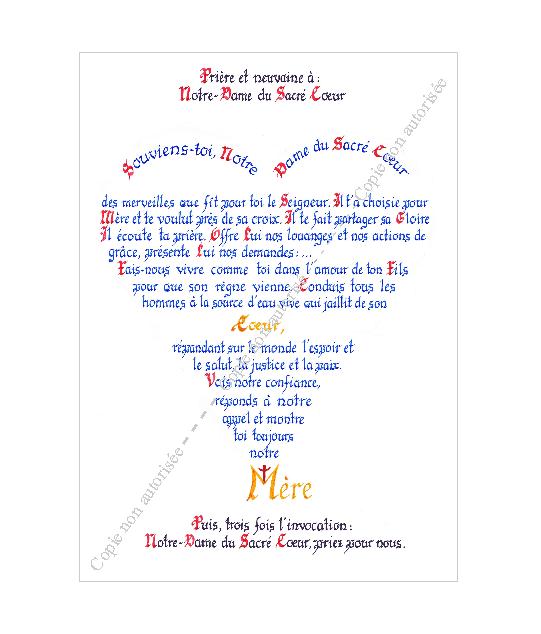 Prière et neuvaine à :
Notre-Dame du Sacré Cœur
Souviens-toi, Notre Dame du Sacré Cœur
des merveilles que fit pour toi le Seigneur. Il t'a choisie pour
Mère et te voulut près de sa croix. Il te fait partager sa Gloire
Il écoute ta prière. Offre Lui nos louanges et nos actions de
grâce, présente Lui nos demandes : ...
Fais-nous vivre comme toi dans l'amour de ton Fils
pour que son règne vienne. Conduis tous les
hommes à la source d'eau vive qui jaillit de son
Cœur,
répandant sur le monde l'espoir et
le salut, la justice et la paix.
Vois notre confiance,
réponds à notre
appel et montre
toi toujours
notre
Mère
Puis, trois fois l'invocation :
Notre-Dame du Sacré Cœur, priez pour nous.
Copie non autorisée - - - - - Copie non autorisée - - - - - Copie non autorisée